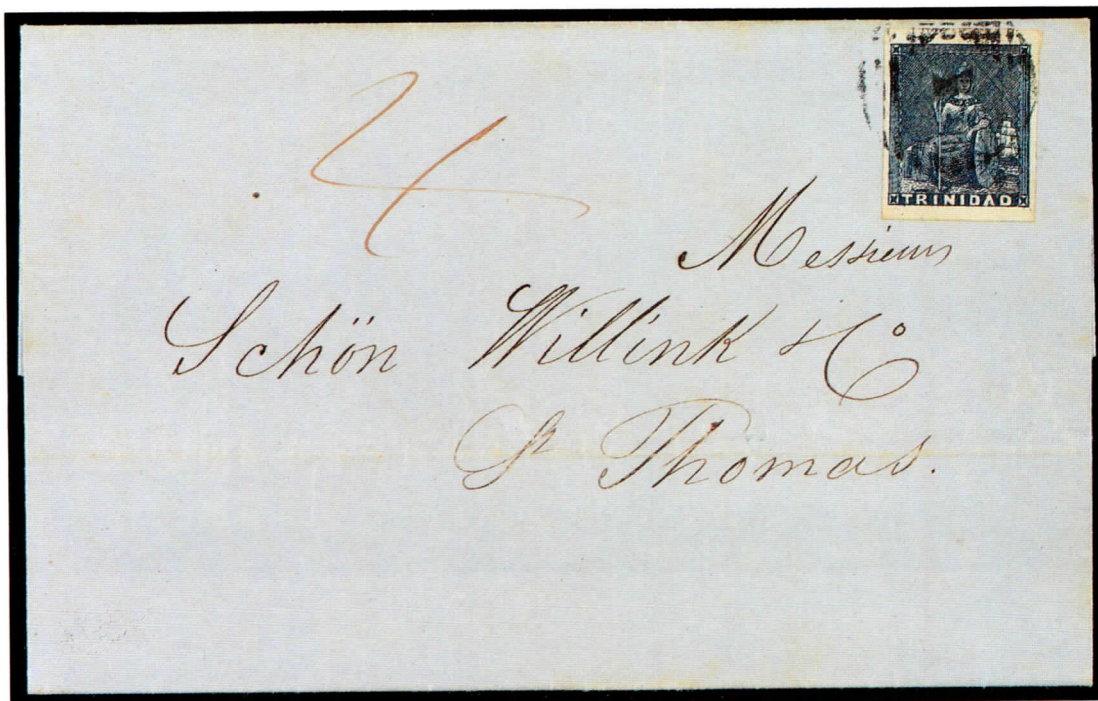 4
TRINIDAD
Messieurs
Schön Willink & Co
St Thomas.